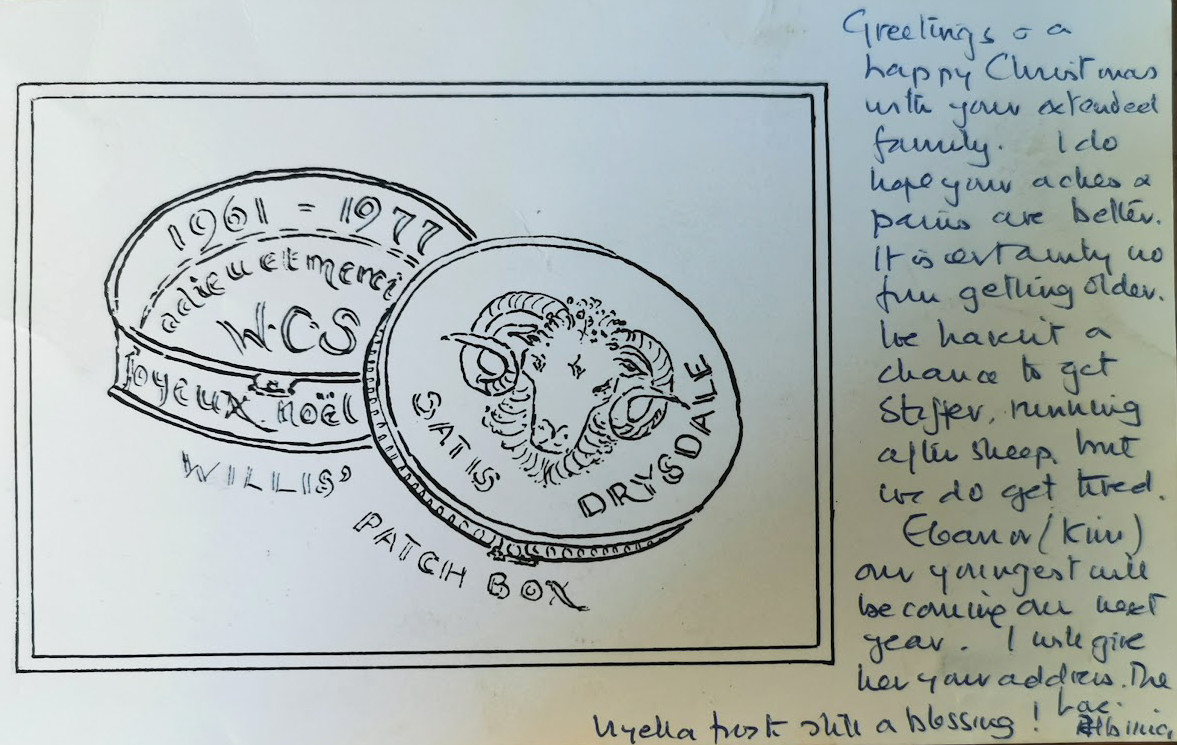 1961 - 1977
adieu et merci
W.C.S
Joyeux noël
SATIS
DRYSDALE
WILLIS'
PATCH BOX
Greetings & a
happy Christmas
with your extended
family. I do
hope your aches &
pains are better.
It is certainly no
fun getting older.
We haven't a
chance to get
stiffer, running
after sheep, but
we do get tired.
Eleanor (Kim)
our youngest will
be coming over next
year. I will give
her your address. The
frost still a blessing!